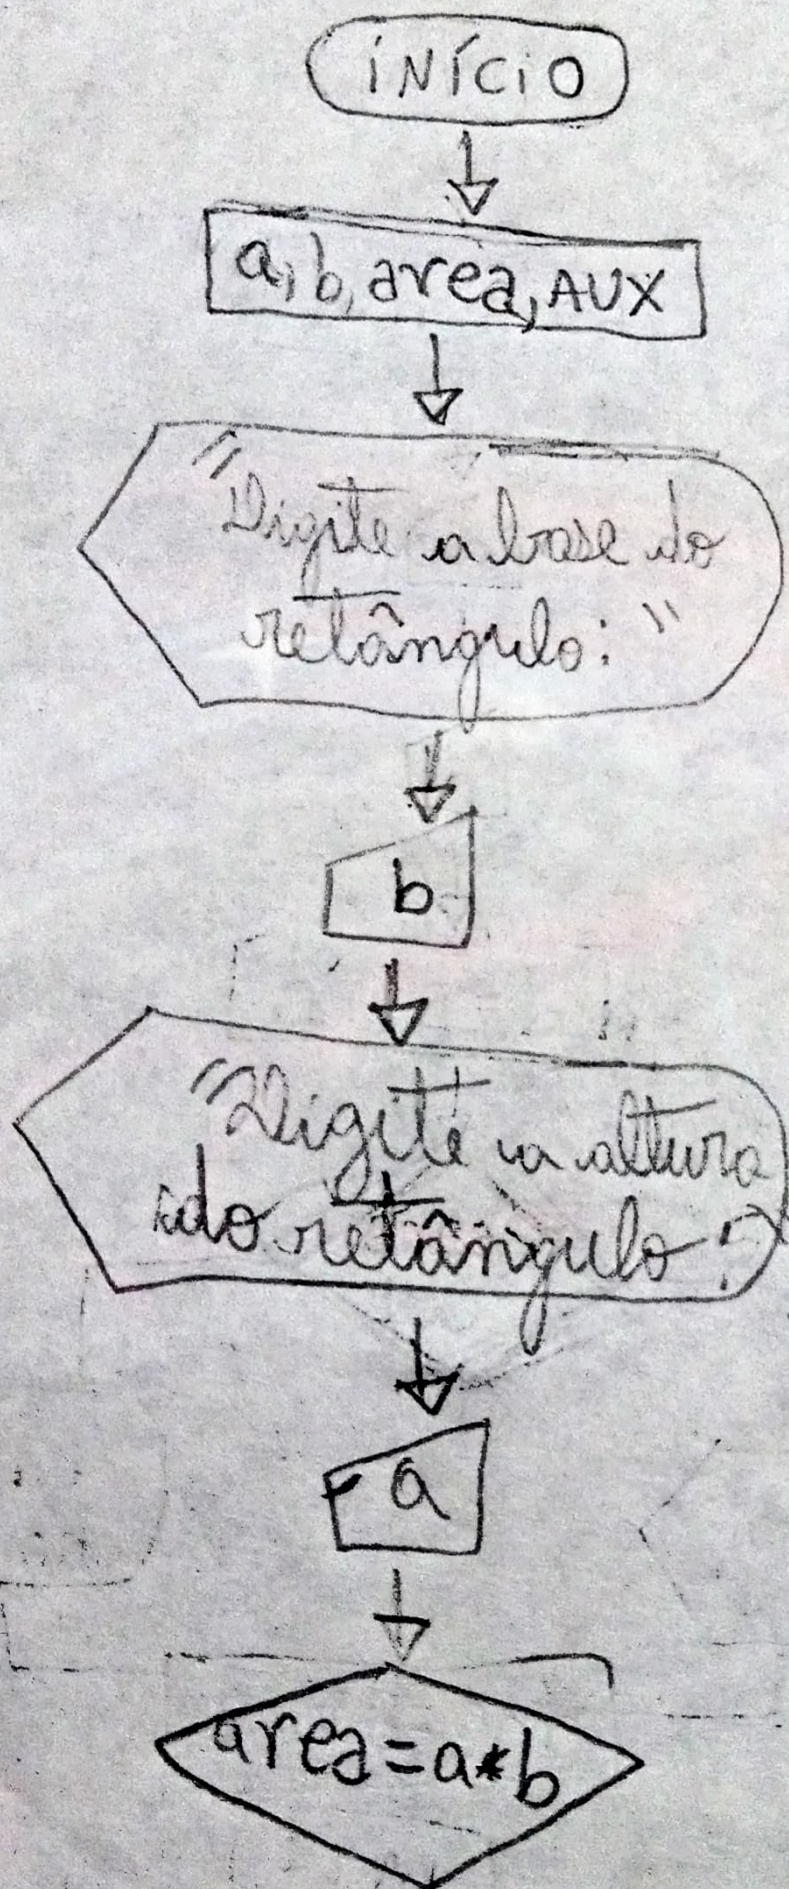 iNÍCiO
a, b, area, AUX
"Digite a base do
retângulo: "
b
"Digite a altura
do retângulo:
a
area=a*b